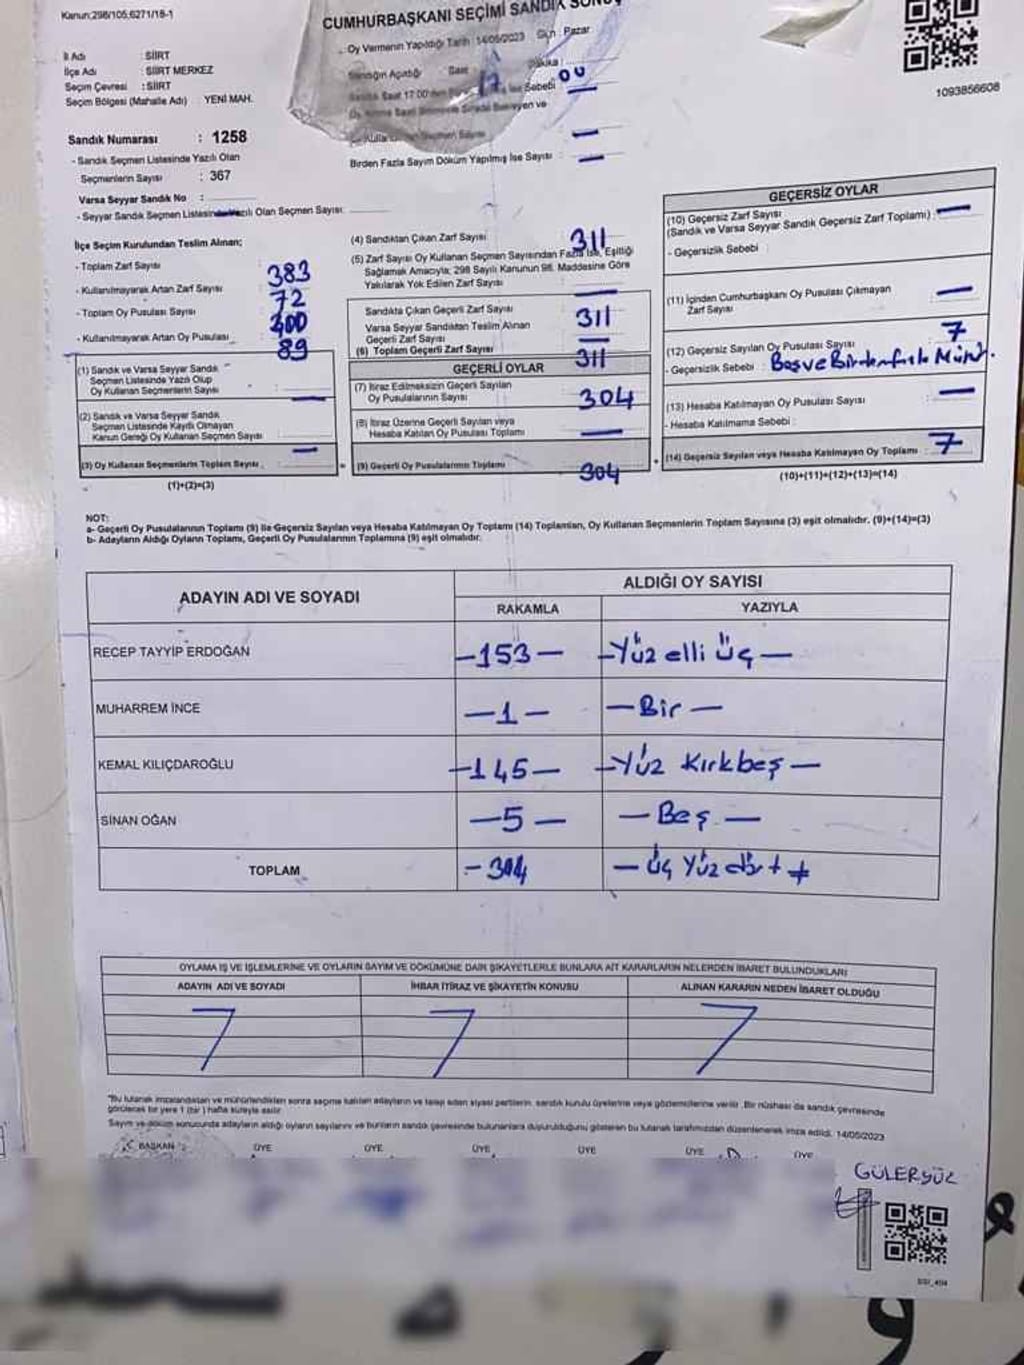 Kanun:298/105;6271/18-1
CUMHURBAŞKANI SEÇİMİ SANDIK
Oy Vermenin Yapıldığı Tarih : 14/05/2023 Gün : Pazar
İl Adı : SİİRT
İlçe Adı : SİİRT MERKEZ
Seçim Çevresi : SİİRT
Seçim Bölgesi (Mahalle Adı) YENİ MAH.
Sandığın Açıldığı Saat 17 Dakika : 00
1093856608
Sandık Numarası : 1258
- Sandık Seçmen Listesinde Yazılı Olan
Seçmenlerin Sayısı : 367
Varsa Seyyar Sandık No :
- Seyyar Sandık Seçmen Listesinde Yazılı Olan Seçmen Sayısı:
Birden Fazla Sayım Döküm Yapılmış İse Sayısı : —
İlçe Seçim Kurulundan Teslim Alınan;
- Toplam Zarf Sayısı : 383
- Kullanılmayarak Artan Zarf Sayısı : 72
- Toplam Oy Pusulası Sayısı : 400
- Kullanılmayarak Artan Oy Pusulası : 89
(1) Sandık ve Varsa Seyyar Sandık
Seçmen Listesinde Yazılı Olup
Oy Kullanan Seçmenlerin Sayısı : —
(2) Sandık ve Varsa Seyyar Sandık
Seçmen Listesinde Kayıtlı Olmayan
Kanun Gereği Oy Kullanan Seçmen Sayısı : —
(3) Oy Kullanan Seçmenlerin Toplam Sayısı :
(1)+(2)=(3)
(4) Sandıktan Çıkan Zarf Sayısı : 311
(5) Zarf Sayısı Oy Kullanan Seçmen Sayısından Fazla İse, Eşitliği
Sağlamak Amacıyla; 298 Sayılı Kanunun 98. Maddesine Göre
Yakılarak Yok Edilen Zarf Sayısı : —
Sandıkta Çıkan Geçerli Zarf Sayısı : 311
Varsa Seyyar Sandıktan Teslim Alınan
Geçerli Zarf Sayısı : —
(6) Toplam Geçerli Zarf Sayısı : 311
GEÇERLİ OYLAR
(7) İtiraz Edilmeksizin Geçerli Sayılan
Oy Pusulalarının Sayısı : 304
(8) İtiraz Üzerine Geçerli Sayılan veya
Hesaba Katılan Oy Pusulası Toplamı : —
(9) Geçerli Oy Pusulalarının Toplamı : 304
GEÇERSİZ OYLAR
(10) Geçersiz Zarf Sayısı
(Sandık ve Varsa Seyyar Sandık Geçersiz Zarf Toplamı) : —
- Geçersizlik Sebebi :
(11) İçinden Cumhurbaşkanı Oy Pusulası Çıkmayan
Zarf Sayısı : —
(12) Geçersiz Sayılan Oy Pusulası Sayısı : 7
- Geçersizlik Sebebi : Boş ve Birden fazla Mühür.
(13) Hesaba Katılmayan Oy Pusulası Sayısı : —
- Hesaba Katılmama Sebebi :
(14) Geçersiz Sayılan veya Hesaba Katılmayan Oy Toplamı : 7
(10)+(11)+(12)+(13)=(14)
NOT:
a- Geçerli Oy Pusulalarının Toplamı (9) ile Geçersiz Sayılan veya Hesaba Katılmayan Oy Toplamı (14) Toplamları, Oy Kullanan Seçmenlerin Toplam Sayısına (3) eşit olmalıdır. (9)+(14)=(3)
b- Adayların Aldığı Oyların Toplamı, Geçerli Oy Pusulalarının Toplamına (9) eşit olmalıdır.
ADAYIN ADI VE SOYADI
ALDIĞI OY SAYISI
RAKAMLA YAZIYLA
RECEP TAYYİP ERDOĞAN -153- -Yüz elli üç-
MUHARREM İNCE -1- -Bir-
KEMAL KILIÇDAROĞLU -145- -Yüz Kırkbeş-
SİNAN OĞAN -5- -Beş-
TOPLAM -304 -Üç Yüz dört
OYLAMA İŞ VE İŞLEMLERİNE VE OYLARIN SAYIM VE DÖKÜMÜNE DAİR ŞİKAYETLERLE BUNLARA AİT KARARLARIN NELERDEN İBARET BULUNDUKLARI
ADAYIN ADI VE SOYADI İHBAR İTİRAZ VE ŞİKAYETİN KONUSU ALINAN KARARIN NEDEN İBARET OLDUĞU
"Bu tutanak imzalandıktan ve mühürlendikten sonra seçime katılan adayların ve talep eden siyasi partilerin, sandık kurulu üyelerine veya gözlemcilerine verilir. Bir nüshası da sandık çevresinde
görülecek bir yere 1 (bir) hafta süreyle asılır.
Sayım ve döküm sonucunda adayların aldığı oyların sayılarını ve bunların sandık çevresinde bulunanlara duyurulduğunu gösteren bu tutanak tarafımızdan düzenlenerek imza edildi. 14/05/2023
BAŞKAN ÜYE ÜYE ÜYE ÜYE ÜYE ÜYE
GÜLERYÜZ